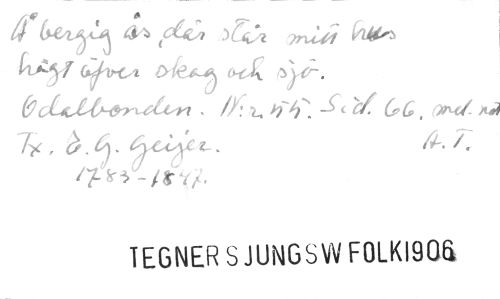 Å bergig ås, där står mitt hus
högt öfver skog och sjö.
Odalbonden. N:r 55. Sid. 66. med. not
Tx. E. G. Geijer. A. T.
1783-1847.
TEGNER SJUNGSWFOLK1906